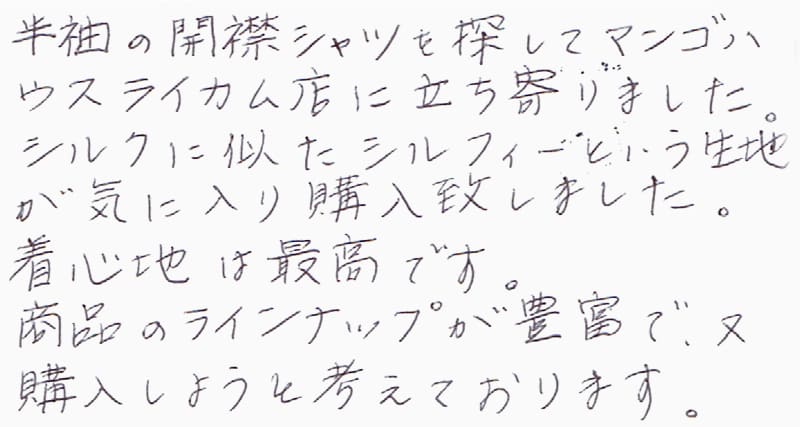 半袖の開襟シャツを探してマンゴハ
ウスライカム店に立ち寄りました。
シルクに似たシルフィーという生地
が気に入り購入致しました。
着心地は最高です。
商品のラインナップが豊富で、又
購入しようと考えております。